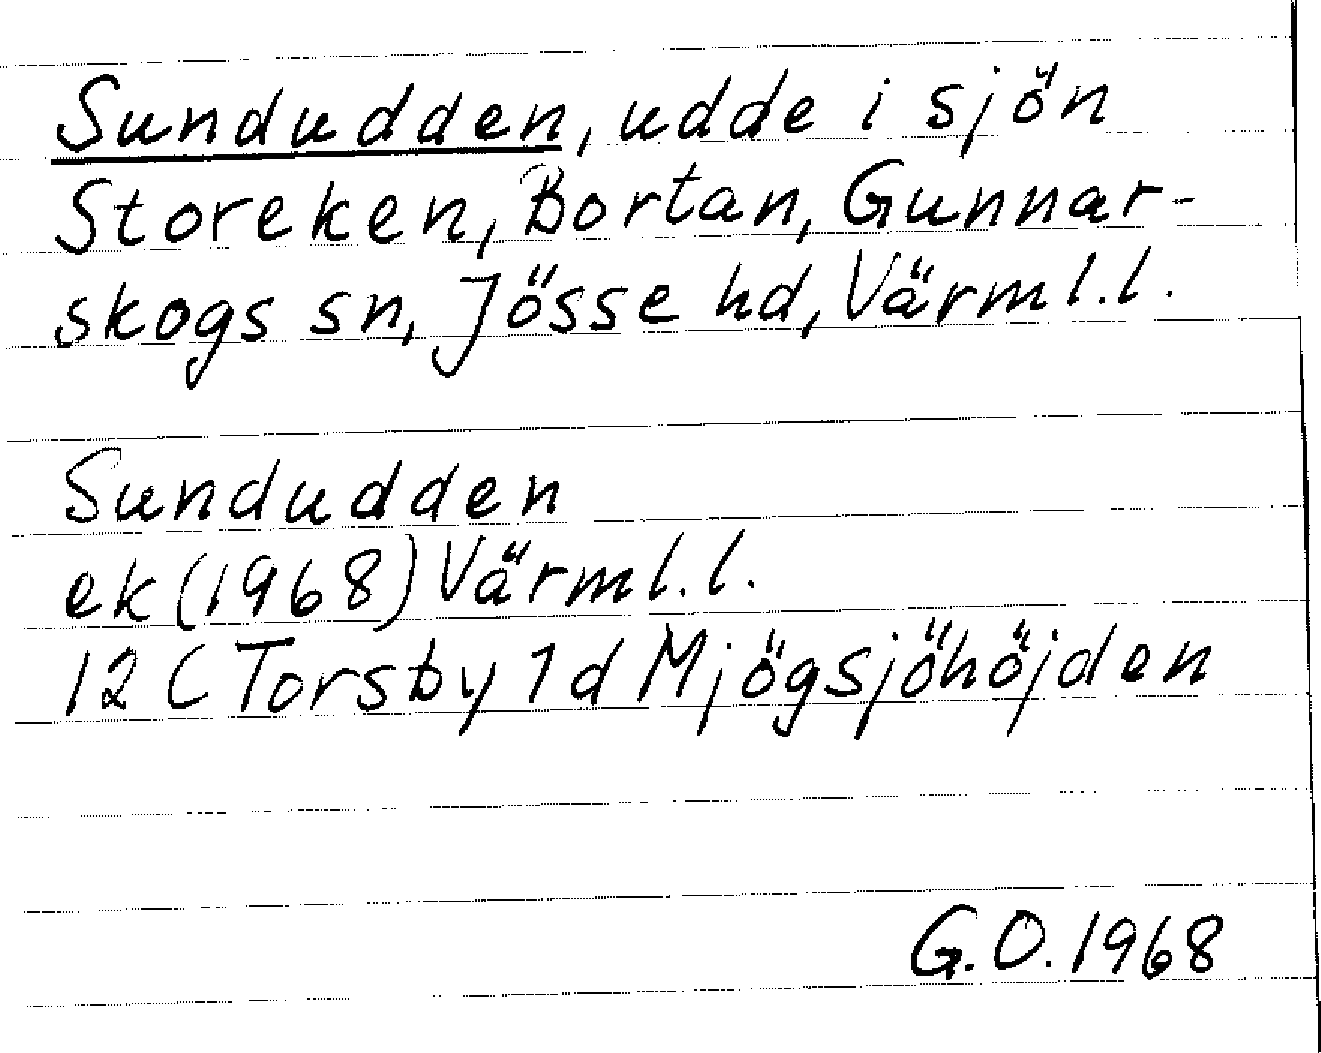 Sundudden, udde i sjön
Storeken, Bortan, Gunnar-
skogs sn, Jösse hd, Värml.l.
Sundudden
ek (1968) Värml.l.
12 C Torsby 1d Mjögsjöhöjden
G.O. 1968